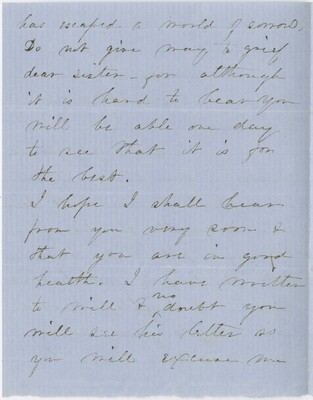 has escaped a world of sorrow.
Do not give way to grief
dear sister - for although
it is hard to bear you
will be able one day
to see that it is for
the best.
I hope I shall hear
from you very soon &
that you are in good
health. I have written
to Will & no doubt you
will see his letter so
you will excuse me